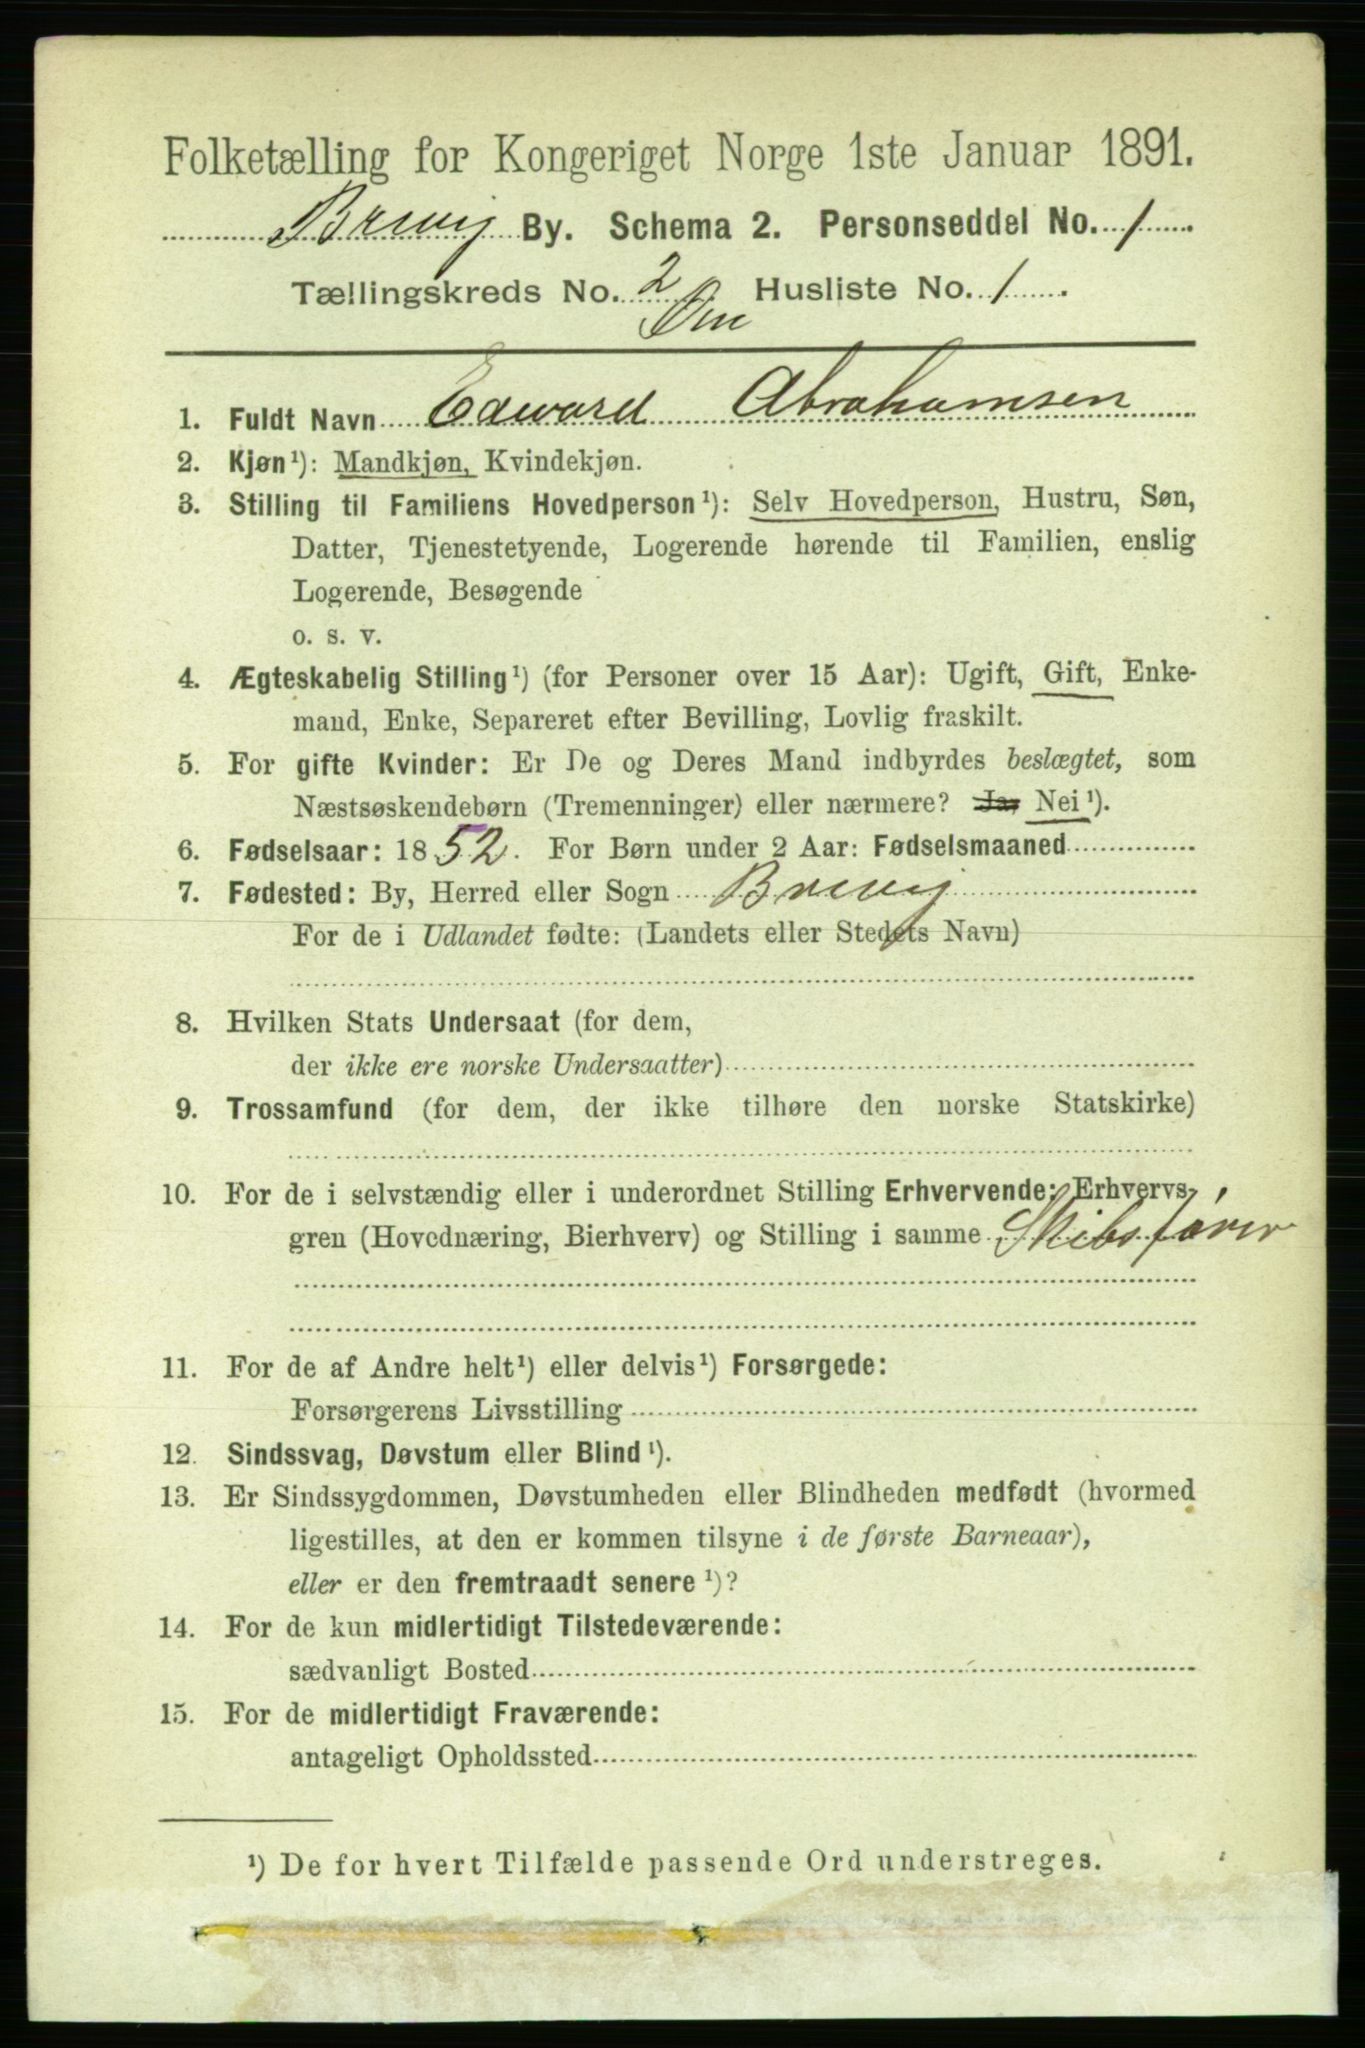 Folketælling for Kongeriget Norge 1ste Januar 1891.
Brevig By. Schema 2. Personseddel No. 1
Tællingskreds No. 2 Husliste No. 1.
1. Fuldt Navn Edward Abrahamsen
2. Kjøn¹): Mandkjøn, Kvindekjøn.
3. Stilling til Familiens Hovedperson¹): Selv Hovedperson, Hustru, Søn,
Datter, Tjenestetyende, Logerende hørende til Familien, enslig
Logerende, Besøgende
o. s. v.
4. Ægteskabelig Stilling¹) (for Personer over 15 Aar): Ugift, Gift, Enke-
mand, Enke, Separeret efter Bevilling, Lovlig fraskilt.
5. For gifte Kvinder: Er De og Deres Mand indbyrdes beslægtet, som
Næstsøskendebørn (Tremenninger) eller nærmere? Ja, Nei¹).
6. Fødselsaar: 1852. For Børn under 2 Aar: Fødselsmaaned
7. Fødested: By, Herred eller Sogn Brevig
For de i Udlandet fødte: (Landets eller Stedets Navn)
8. Hvilken Stats Undersaat (for dem,
der ikke ere norske Undersaatter)
9. Trossamfund (for dem, der ikke tilhøre den norske Statskirke)
10. For de i selvstændig eller i underordnet Stilling Erhvervende: Erhvervs-
gren (Hovednæring, Bierhverv) og Stilling i samme Skibsfører
11. For de af Andre helt¹) eller delvis¹) Forsørgede:
Forsørgerens Livsstilling
12. Sindssvag, Døvstum eller Blind¹).
13. Er Sindssygdommen, Døvstumheden eller Blindheden medfødt (hvormed
ligestilles, at den er kommen tilsyne i de første Barneaar),
eller er den fremtraadt senere¹)?
14. For de kun midlertidigt Tilstedeværende:
sædvanligt Bosted
15. For de midlertidigt Fraværende:
antageligt Opholdssted
¹) De for hvert Tilfælde passende Ord understreges.